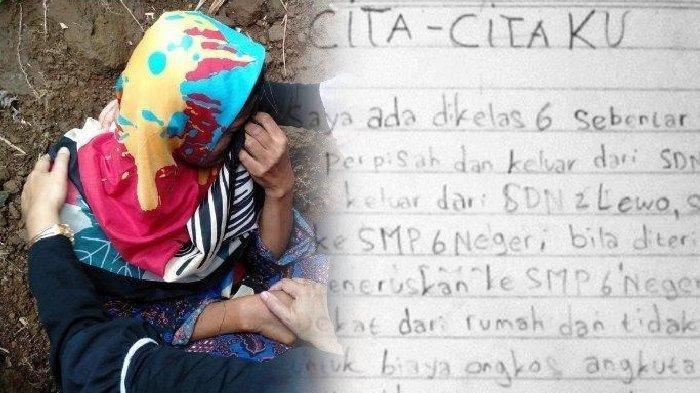 CITA-CITA KU
saya ada dikelas 6 sebentar
perpisah dan keluar dari SDN
keluar dari SDN 2 Lewo,
ke SMP 6 Negeri bila diter
neruskan ke SMP 6 Nege
ekat dari rumah dan tidak
ntuk biaya ongkos angkuta